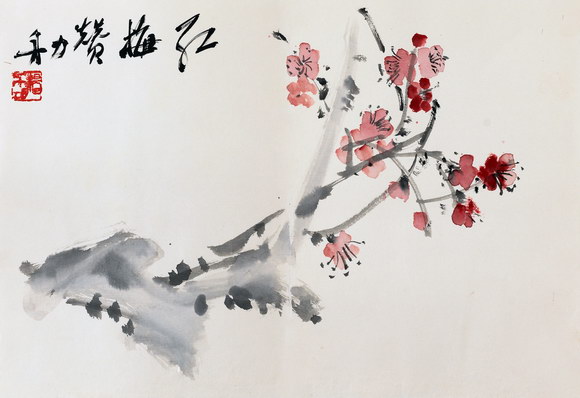 红梅赞力舟